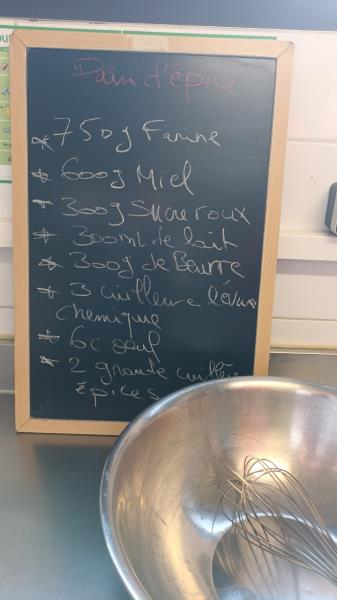 Pain d'épice
* 750g Farine
* 600g Miel
* 300g Sucre roux
* 300ml de lait
* 300g de Beurre
* 3 cuillere lévure
chemique
* 6 oeuf
* 2 grande cuillère
épices